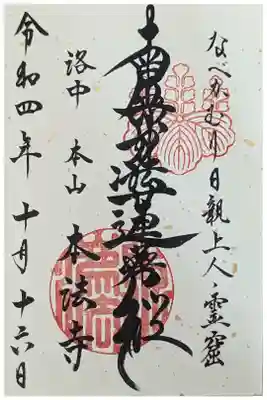 なべかむり日親上人霊窟
南無妙法蓮華経
洛中 本山 本法寺
令和四年十月十六日